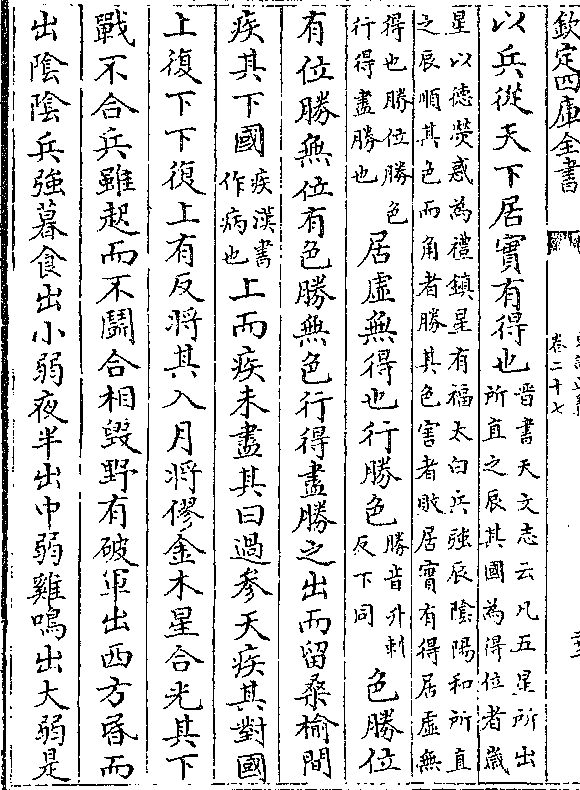 欽定四庫全書
卷二十七
以兵從天下居實有得也
晉書天文志云凡五星所出
所直之辰其國為得位者歲
星以德熒惑為禮鎮星有福太白兵強辰陰陽和所直
之辰順其色而角者勝其色害者敗居實有得居虛無
得也勝位勝色
行得盡勝也
居虛無得也行勝色
勝音升剌
反下同
色勝位
有位勝無位有色勝無色行得盡勝之出而留桑榆間
疾其下國
疾漢書
作病也
上而疾未盡其日過參天疾其對國
上復下下復上有反將其入月將僇金木星合光其下
戰不合兵雖起而不鬭合相毀野有破軍出西方昏而
出陰陰兵強暮食出小弱夜半出中弱雞鳴出大弱是